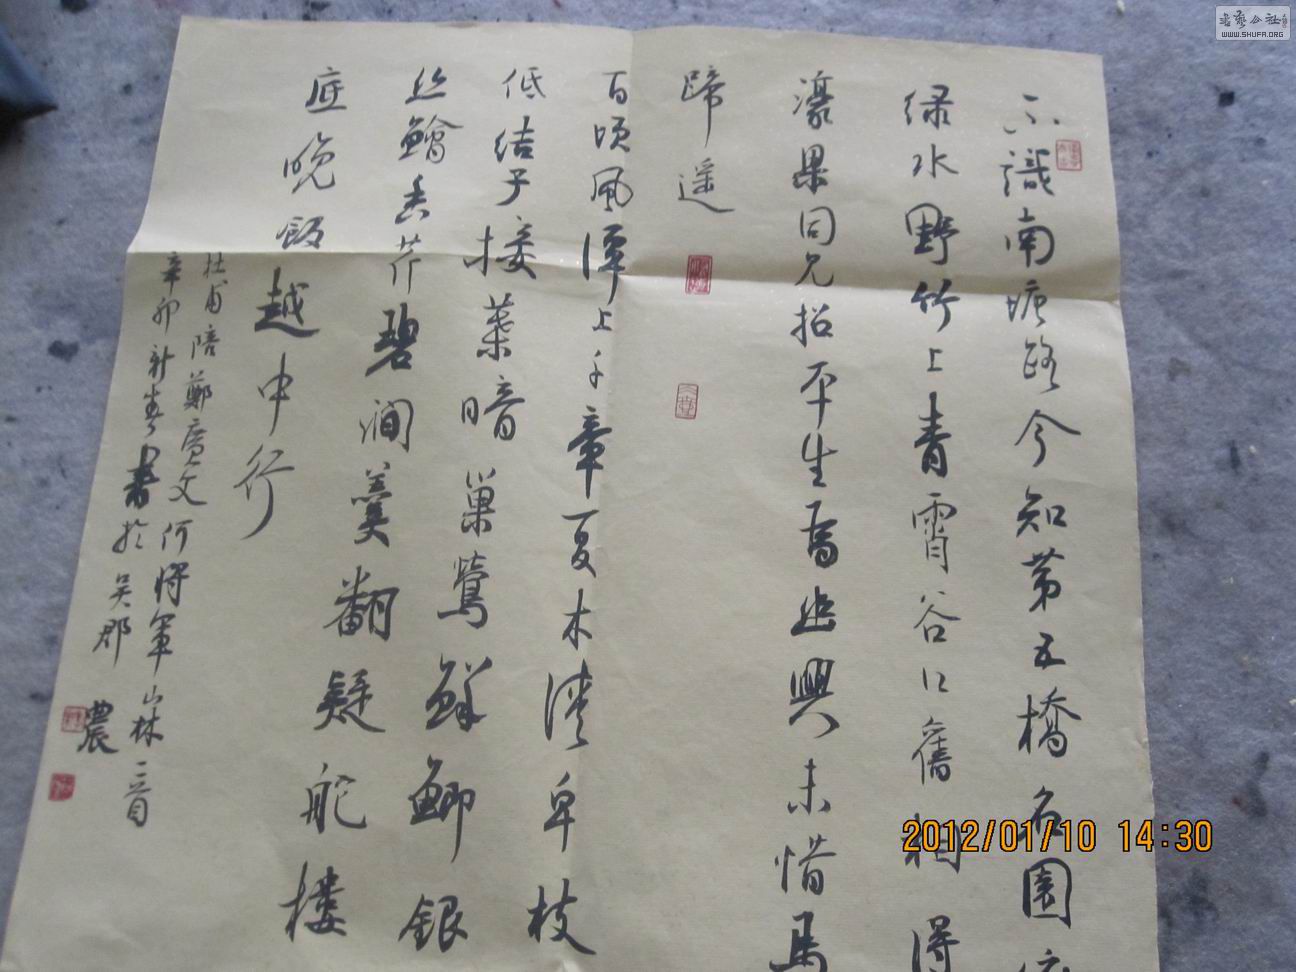 不識南塘路今知第五橋名園
绿水野竹上青霄谷口舊相得
濠果同兄招平生為幽興未惜馬
蹄遥
百頃風潭上千章夏木清卑枝
低結子接葉暗巢鶯鮮鯽银
丝鱠香芹碧澗羹翻疑舵樓
底晚飯越中行
杜甫陪鄭廣文何將軍山林二首
辛卯新春書於吴郡
農
書藝公社
WWW.SHUFA.ORG
2012/01/10 14:30